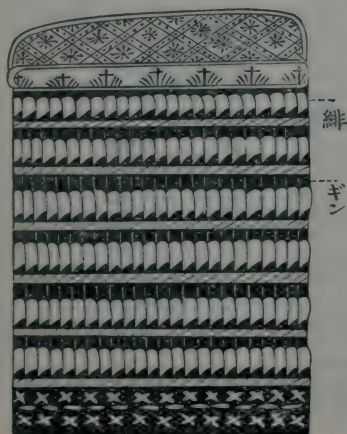 緋
ギン